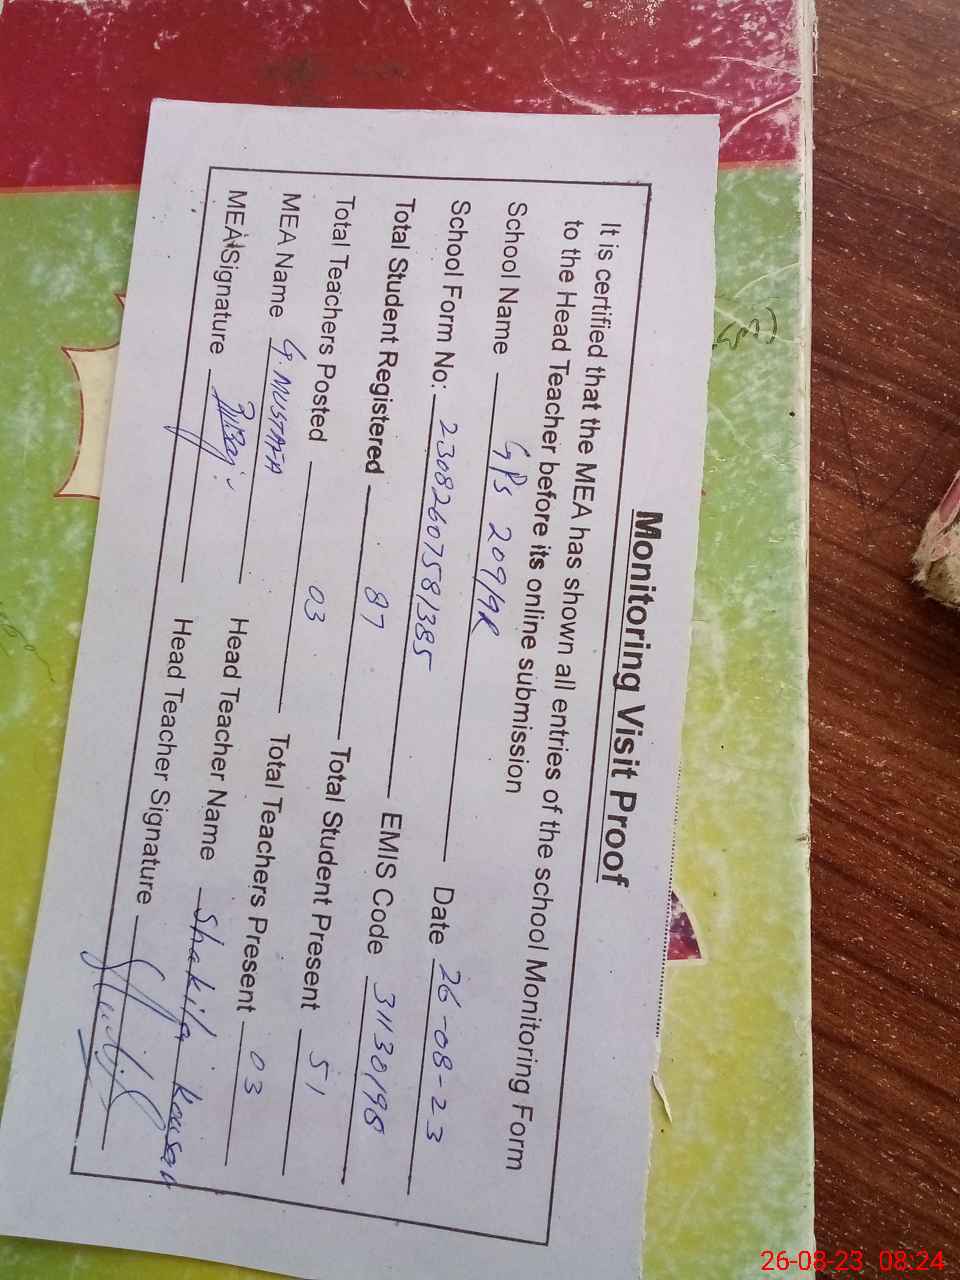 Monitoring Visit Proof
It is certified that the MEA has shown all entries of the school Monitoring Form
to the Head Teacher before its online submission
School Name GPS 209/9R
School Form No: 23082607581385 Date 26-08-23
Total Student Registered 87 EMIS Code 31130198
Total Teachers Posted 03 Total Student Present 51
MEA Name G. MUSTAFA Total Teachers Present 03
MEA Signature Head Teacher Name Shakila Kousar
Head Teacher Signature
26-08-23 08:24